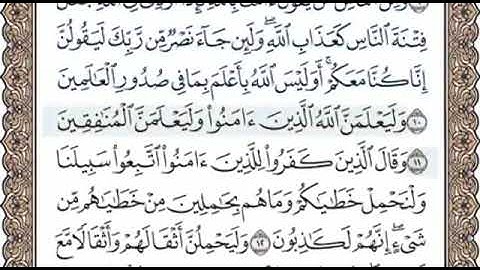 فِتْنَةَ ٱلنَّاسِ كَعَذَابِ ٱللَّهِۖ وَلَئِن جَآءَ نَصْرٌ مِّن رَّبِّكَ لَيَقُولُنَّ
إِنَّا كُنَّا مَعَكُمْۚ أَوَلَيْسَ ٱللَّهُ بِأَعْلَمَ بِمَا فِى صُدُورِ ٱلْعَٰلَمِينَ
١٠ وَلَيَعْلَمَنَّ ٱللَّهُ ٱلَّذِينَ ءَامَنُوا۟ وَلَيَعْلَمَنَّ ٱلْمُنَٰفِقِينَ
١١ وَقَالَ ٱلَّذِينَ كَفَرُوا۟ لِلَّذِينَ ءَامَنُوا۟ ٱتَّبِعُوا۟ سَبِيلَنَا
وَلْنَحْمِلْ خَطَٰيَٰكُمْ وَمَا هُم بِحَٰمِلِينَ مِنْ خَطَٰيَٰهُم مِّن
شَىْءٍۖ إِنَّهُمْ لَكَٰذِبُونَ ١٢ وَلَيَحْمِلُنَّ أَثْقَالَهُمْ وَأَثْقَالًا مَّعَ